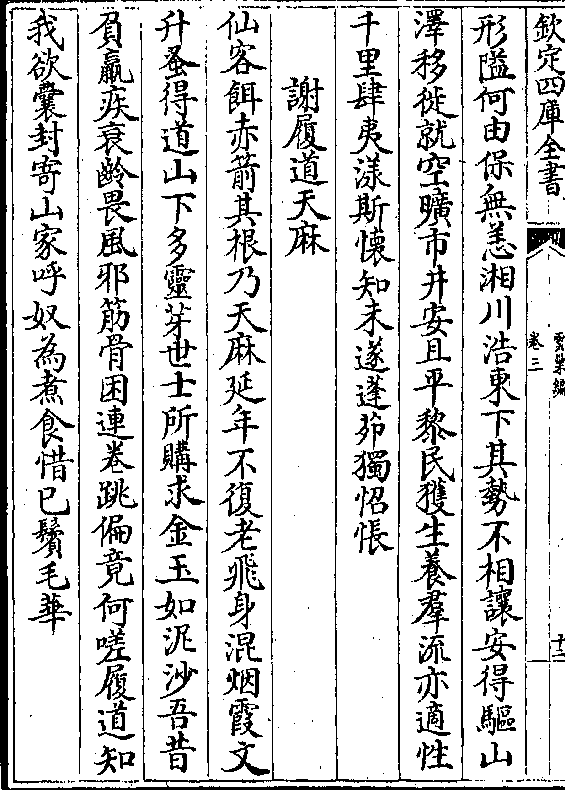 欽定四庫全書
雲巢編
卷三
十二
形隘何由保無恙湘川浩東下其勢不相讓安得驅山
澤移徙就空曠市井安且平黎民獲生養羣流亦適性
千里肆夷漾斯懷知未遂蓬茆獨怊悵
謝履道天麻
仙客餌赤箭其根乃天麻延年不復老飛身混烟霞文
升蚤得道山下多靈芽世士所購求金玉如泥沙吾昔
負羸疾衰齡畏風邪筋骨困連卷跳偏竟何嗟履道知
我欲囊封寄山家呼奴為煮食惜已鬢毛華